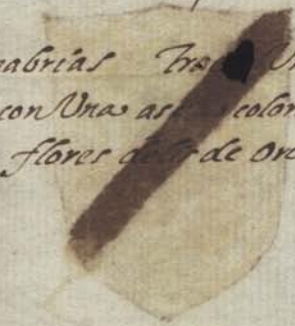 abrias Trae Un
con Una as color
flores de lis de oro